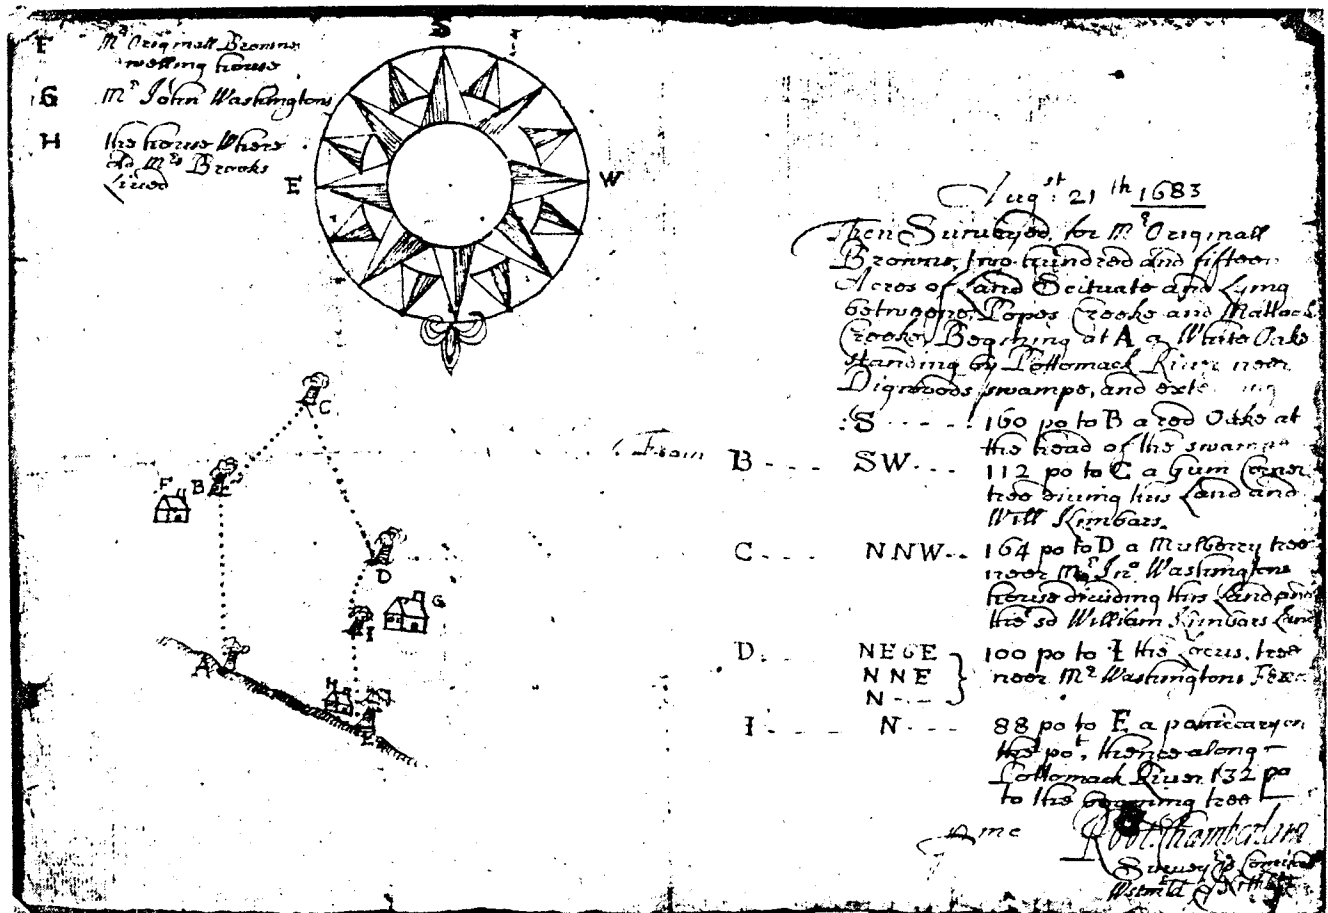 F Mr Originall Browns
welling house
G Mr John Washingtons
H the house Where
old Mrs Brooks
Lived
S
E
W
C
F
B
D
G
I
A
H
E
Augst: 21th 1683
Then Surveyed for Mr Originall
Browne, two hundred and fifteen
Acres of Land Scituate and Lying
betweene Popes Creeke and Mattocks
Creeke, Begining at A a White Oake
standing by Pottomack River neer
Digwoods swampe, and exte ing
S 160 po to B a red Oake at
the head of the swampe
From B SW 112 po to C a Gum Corner
tree diuing his Land and
Will Kimbars.
C NNW 164 po to D a Mulberry tree
neer Mr Jno Washingtons
house dividing this Land and
the sd William Kimbars Land
D NEGE 100 po to I the Locus tree
NNE neer Mr Washingtons
N
I N 88 po to E a on
the pot, thence along
Pottomack River 132 po
to the begining tree
me Robt. Chamberlain
Survey